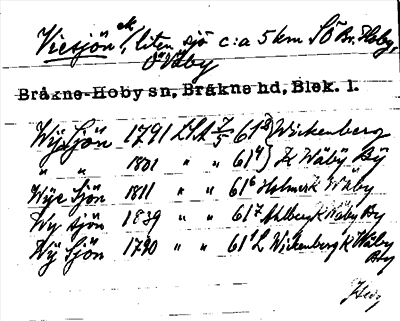 Viesjön ek, liten sjö c:a 5 km SÖ Br. Hoby,
Ö Väby
Bråkne-Hoby sn, Bråkne hd, Blek. l.
Wÿ Sjön 1791 LSA 7/5 61 Wickenberg
" " 1801 " " 61 Wäby By
Wye Sjön 1811 " " 61 Holmerk Wäby
Wy sjön 1839 " " 61 Ahlberg k Wäby By
Wÿ Sjön 1790 " " 61 L Wickenberg k Wäby
By